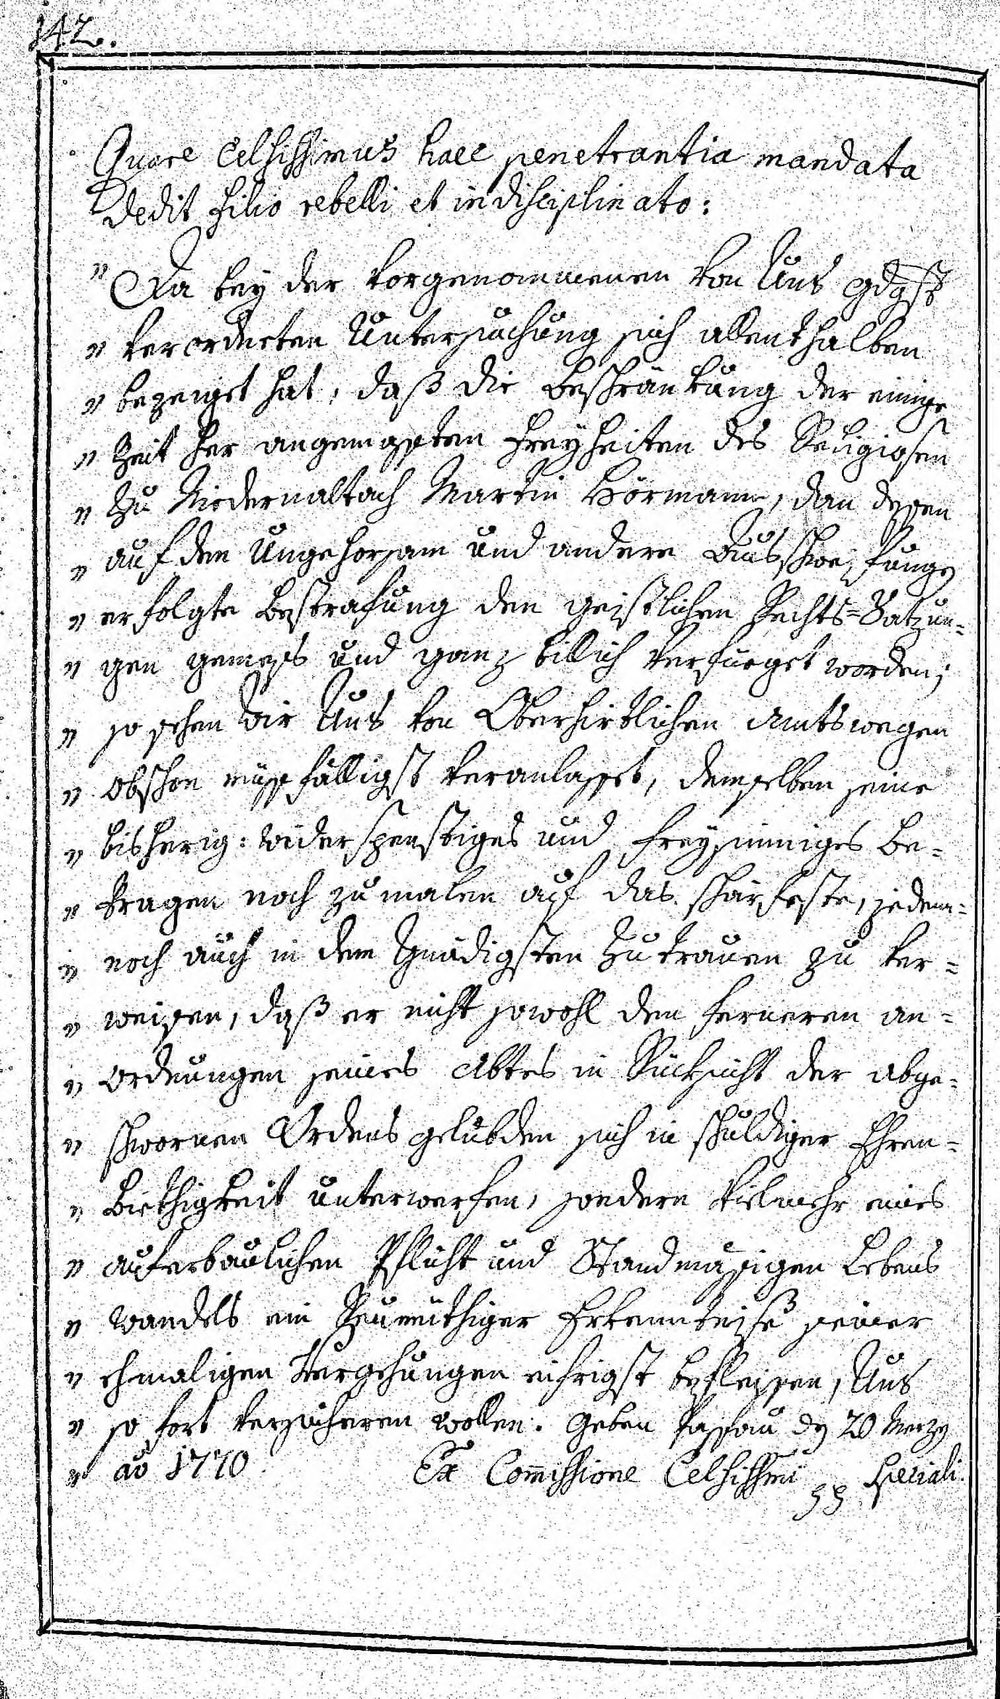 142.
Quare Celsissimus haec penetrantia mandata
dedit filio rebelli et indisciplinato:
" Da bey der vorgenommenen von Uns gdgst
" verordneten Untersuchung sich allenthalben
" bezeiget hat, daß die Beschränkung der einige
" Zeit her angemassten Freyheiten des Religiosen
" zu Niedernaltach Martin Hörmann, dan dessen
" auf den Ungehorsam und andere Ausschweifungen
" erfolgte Bestrafung den geistlichen Rechts=Satzun=
" gen gemess und ganz billich verfüeget worden;
" so sehen wir Uns von Oberhirtlichen Amtswegen
" obschon müssfälligst veranlasset, demselben seine
" bisherig: widerspenstiges und freysinniges Be=
" tragen noch zumalen auf das schärfeste, jedem=
" noch auch in dem Gnädigsten Zutrauen zu ver=
" weisen, daß er nicht sowohl den ferneren an=
" ordnungen seines Abtes in Rücksicht der abge=
" schwornen Ordens gelübden sich in schuldiger Ehren=
" biethigkeit unterwerfen, sondern vielmehr eines
" auferbaulichen Pflicht und Standmäsigen Lebens
" wandels ein Reumüthiger Erkenntniße seiner
" ehmaligen Vergehungen eifrigst befleissen, Uns
" so fort versicheren wollen. Geben Passau dn 20 Merzen
" ao 1770. Ex Commissione Celsissimi speciali